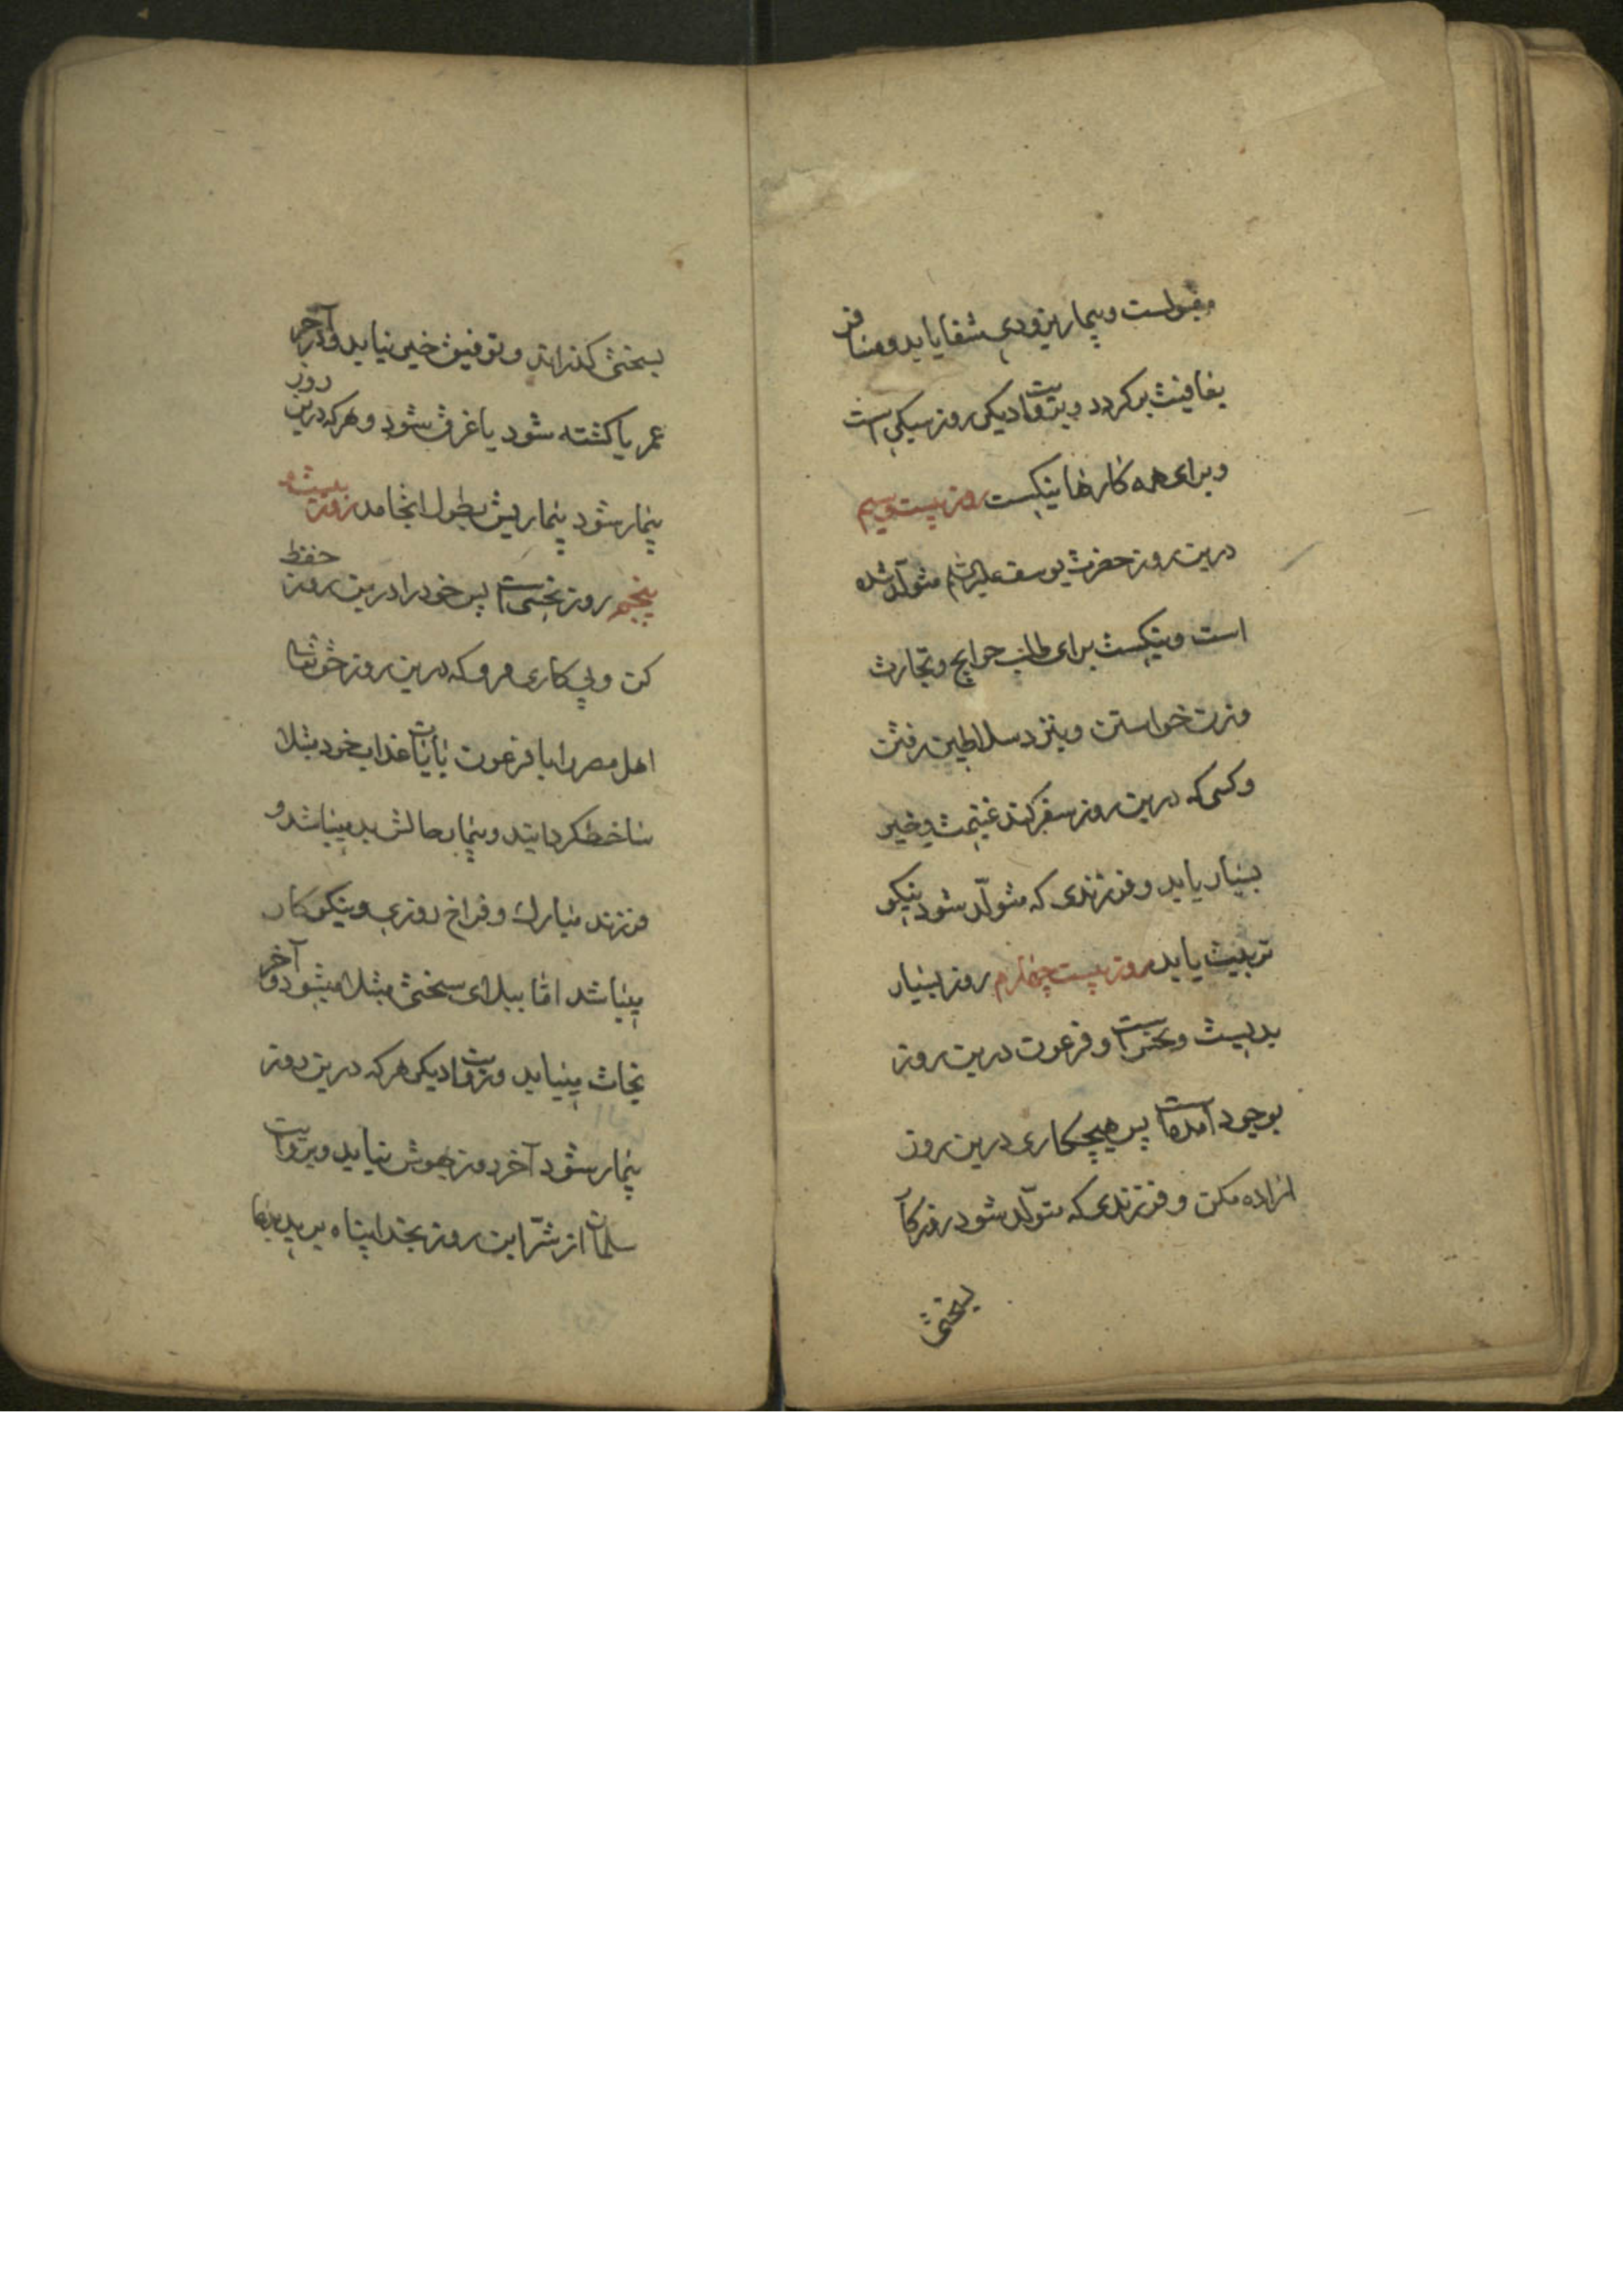 مقبولست و بیمار بزودی شفا یابد و مسافر
بعافیت برگردد و بروایت دیگر روز سبکی است
و برای همه کارها نیکست روز بیست و سیم
درین روز حضرت یوسف علیه السّلام متولّد شده
است و نیکست برای طلب حوایج و تجارت
و زن خواستن و بنزد سلاطین رفتن
و کسی که درین روز سفر کند غنیمت و خیر
بسیار یابد و فرزندی که متولّد شود نیکو
تربیت یابد روز بیست چهارم روز بسیار
بدیست و نحس است و فرعون درین روز
بوجود آمده است پس هیچ کاری درین روز
اراده مکن و فرزندی که متولّد شود روزگار
بسختی
بسختی گذراند و توفیق خیر نیابد و در آخر
عمر یا کشته شود یا غرق شود و هر که درین روز
بیمار شود بیماریش بطول انجامد روز بیست
پنجم روز نحس است پس خود را درین روز حفظ
کن و پی کاری مرو که درین روز حق تعالی
اهل مصر را با فرعون بآیات عذاب خود مبتلا
ساخط گردانید و بیمار حالش بد میباشد و
فرزند مبارک و فراخ روزی و نیکو کار
میباشد امّا ببلای سختی مبتلا میشود و آخر
نجات مییابد و بروایت دیگر هر که درین روز
بیمار شود آخر روز بهوش نیاید و بروایت
سلمان از شرّ این روز بخدا پناه برید بدعا